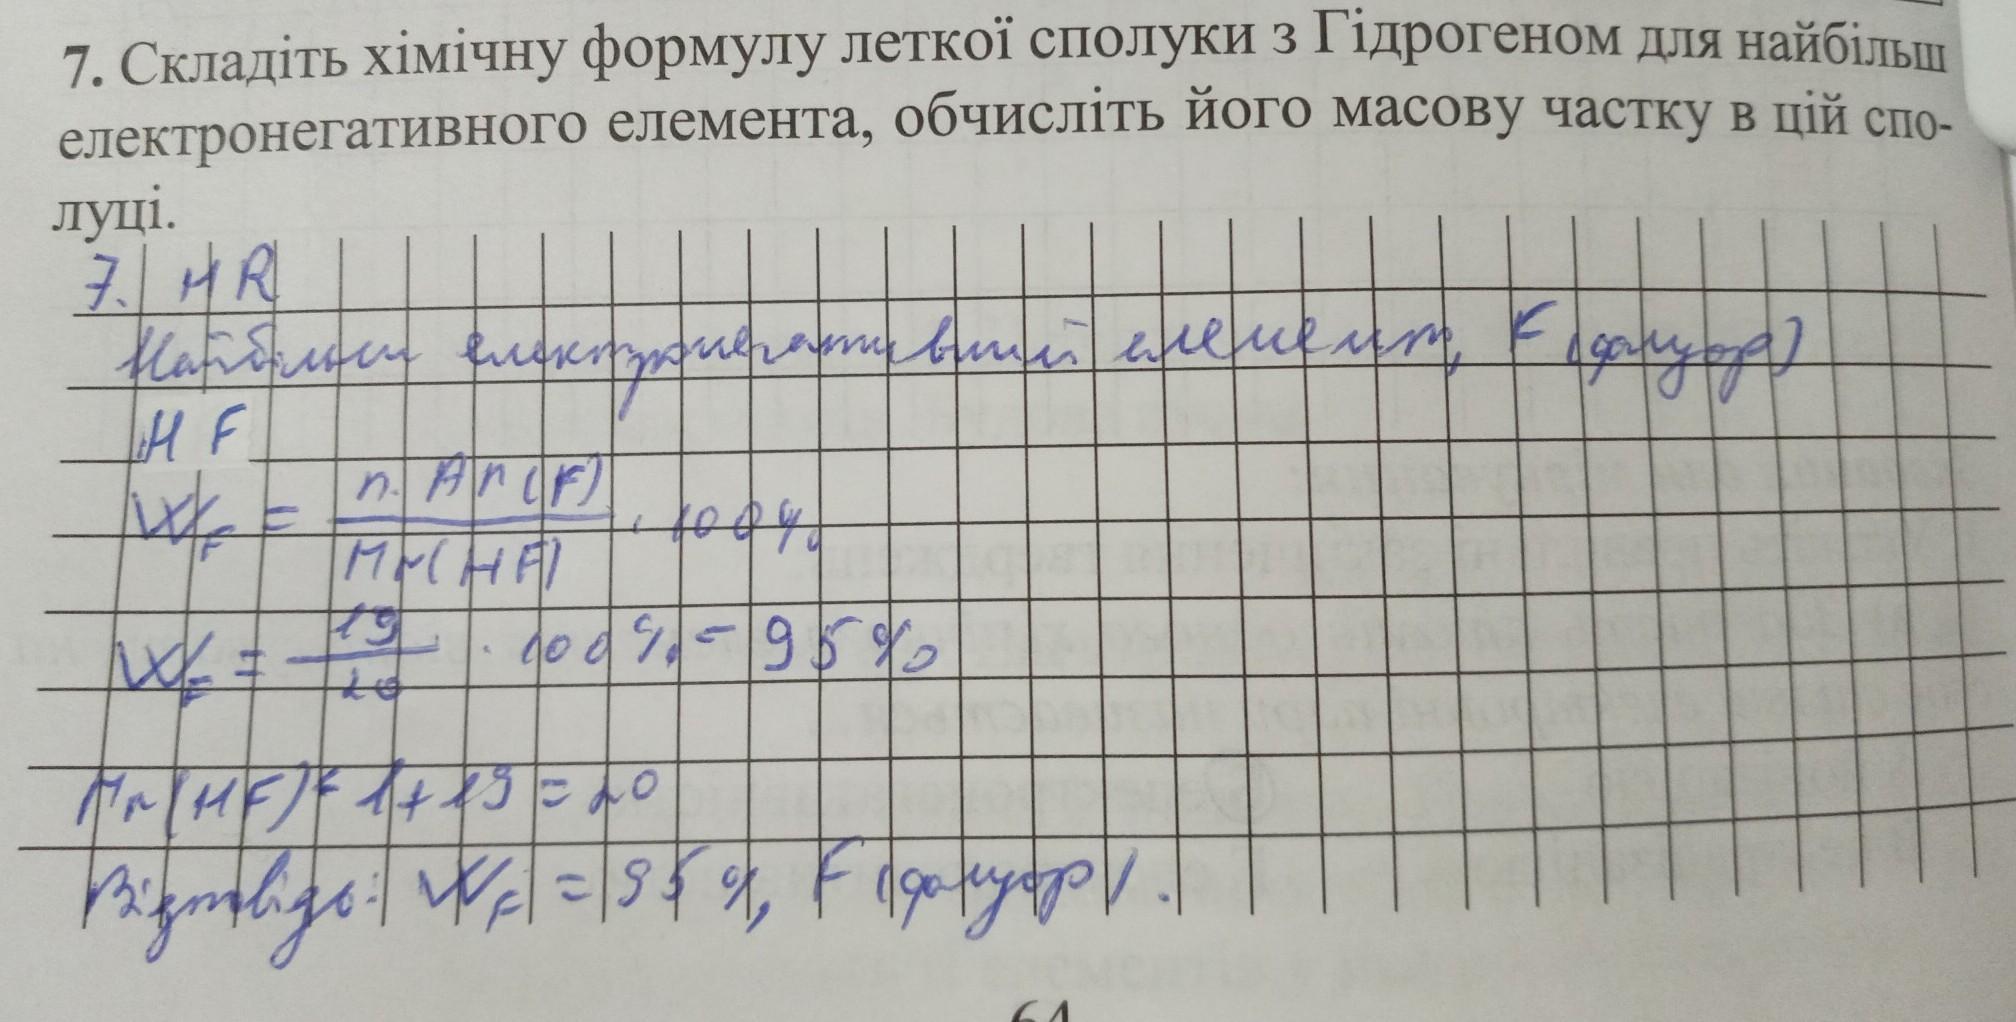 7. Складіть хімічну формулу леткої сполуки з Гідрогеном для найбільш
електронегативного елемента, обчисліть його масову частку в цій спо-
луці.
7. HR
Найбільш електронегативний елемент, F (флуор)
HF
W_F = n. Ar(F) / Mr(HF) · 100%
W_F = 19 / 20 · 100% = 95%
Mr(HF) = 1 + 19 = 20
Відповідь: W_F = 95%, F (флуор).
64